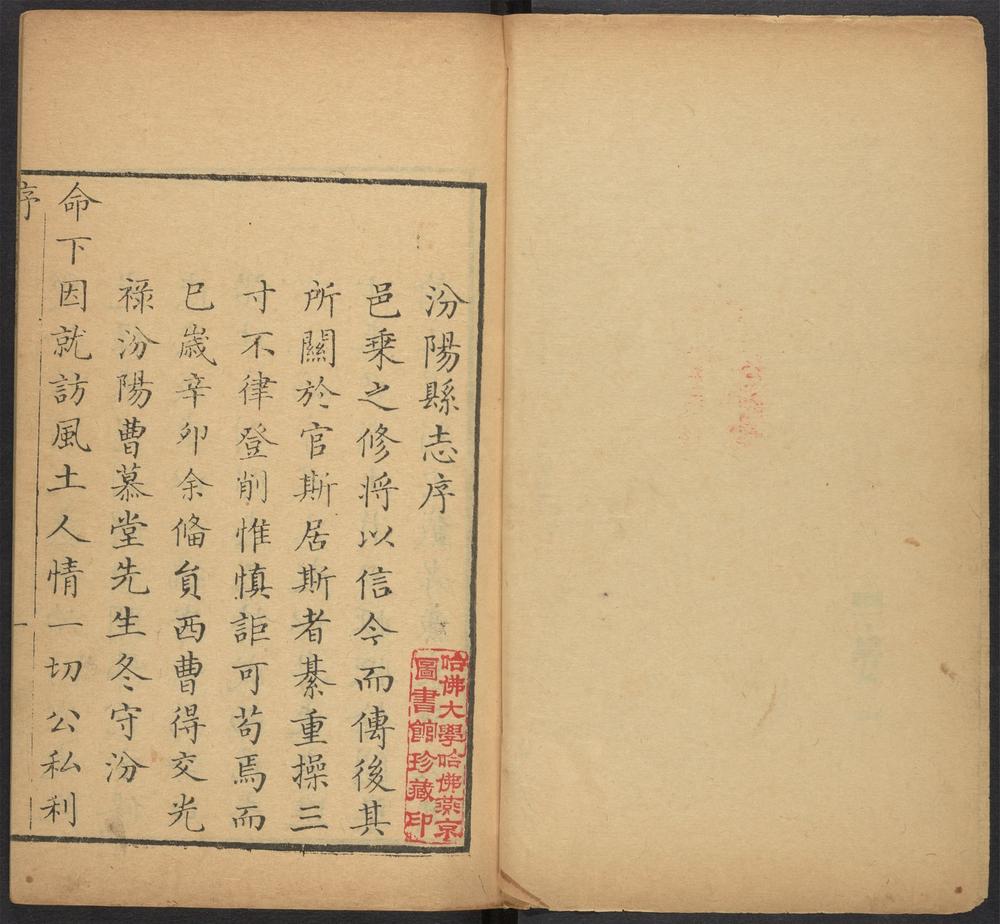 汾陽縣志序
邑乗之修將以信今而傳後其
所關於官斯居斯者綦重操三
寸不律登削惟慎詎可苟焉而
巳歲辛卯余俻員西曹得交光
祿汾陽曹慕堂先生冬守汾
命下因就訪風土人情一切公私利
序
一
哈佛大學哈佛燕京
圖書館珍藏印